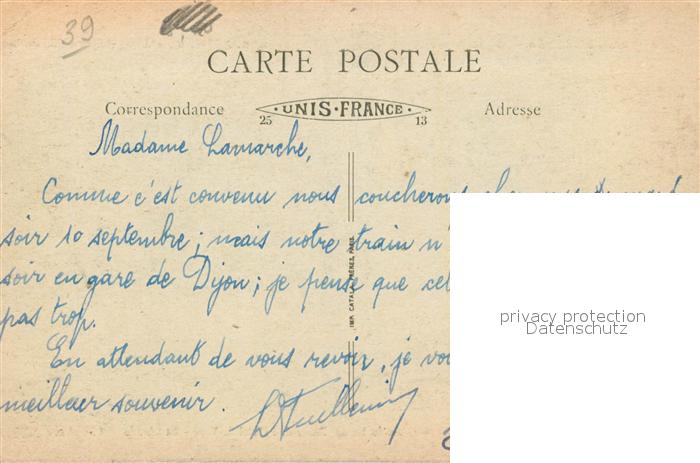 39
CARTE POSTALE
Correspondance
UNIS·FRANCE
Adresse
25 13
Madame Lamarche,
Comme c'est convenu nous coucherons
soir 10 septembre ; mais notre train n'
soir en gare de Dijon ; je pense que cel
pas trop.
En attendant de vous revoir, je vou
meilleur souvenir.
IMP. CATALA FRÈRES, PARIS
privacy protection
Datenschutz